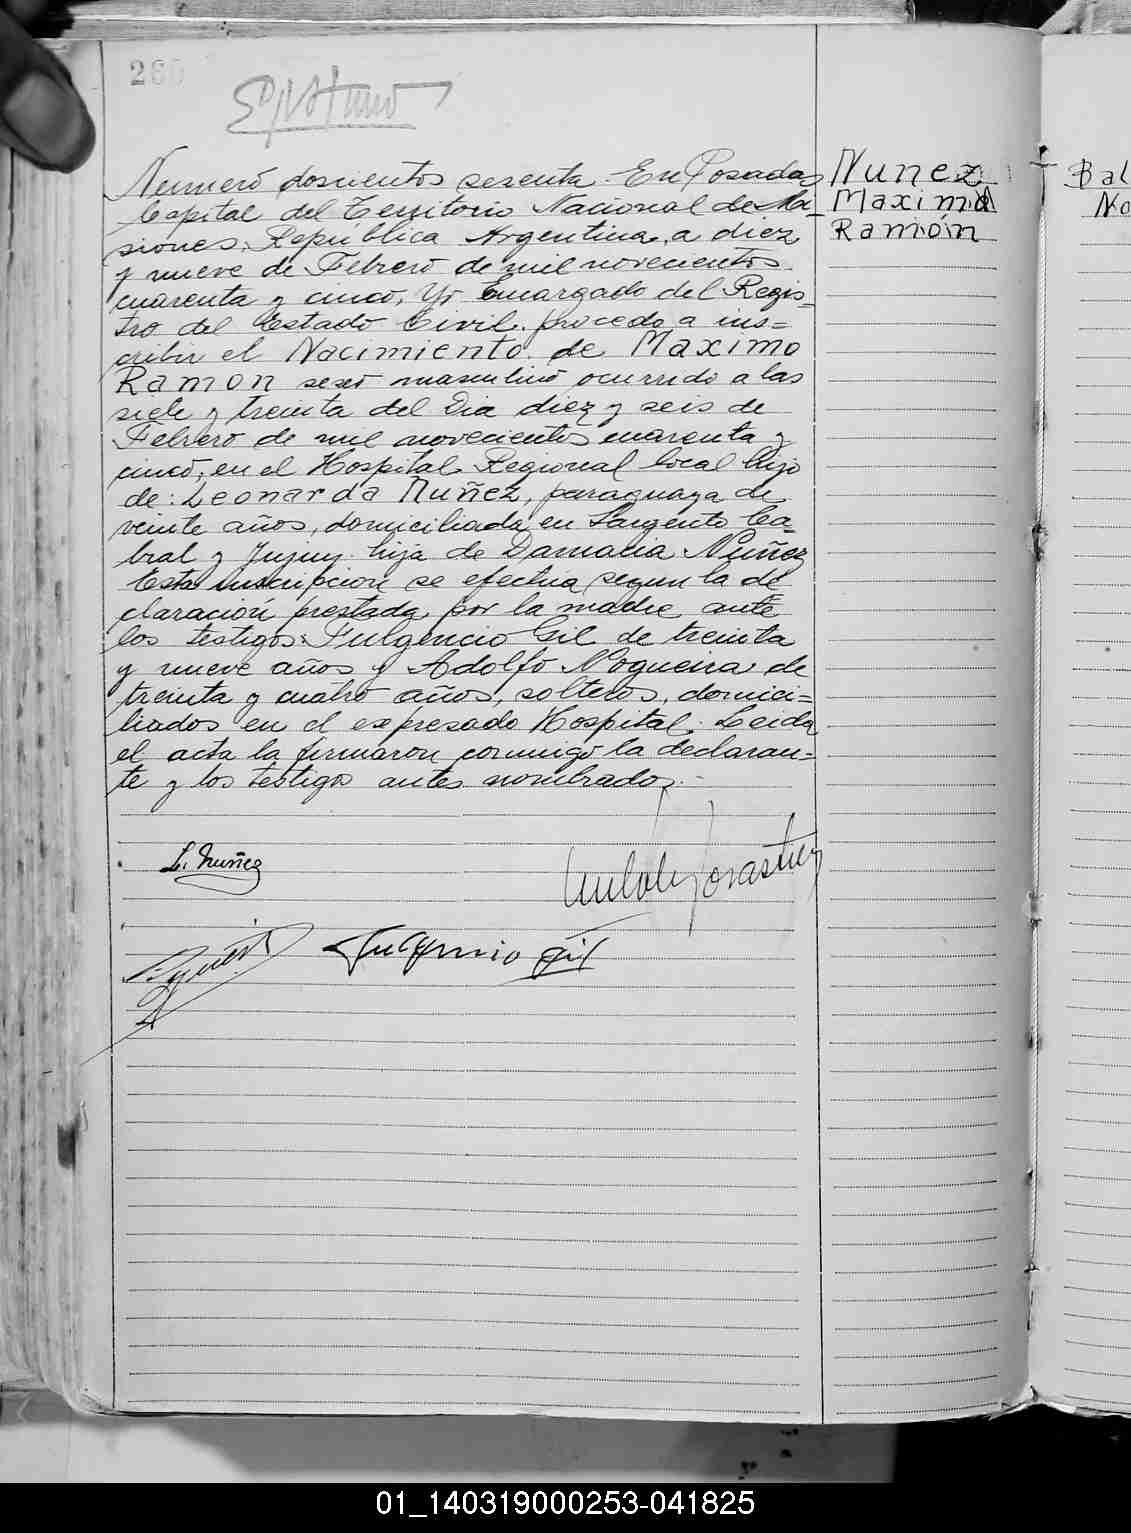 260
Numeró doscientos sesenta. En Posadas
Capital del Territorio Nacional de Mi-
siones, República Argentina, a diez
y nueve de Febrero de mil novecientos
cuarenta y cinco, Yo Encargado del Regis-
tro del Estado Civil, procedo a ins=
cribir el Nacimiento de Maximo
Ramon sexo masculino ocurrido a las
siete y treinta del Dia diez y seis de
Febrero de mil novecientos cuarenta y
cinco, en el Hospital Regional local hijo
de: Leonarda Nuñez, paraguaya de
veinte años, domiciliada en Sargento Ca-
bral y Jujuy hija de Damacia Nuñez
Esta inscripcion se efectua segun la de
claracion prestada por la madre ante
los testigos: Fulgencio Gil de treinta
y nueve años y Adolfo Nogueira de
treinta y cuatro años, solteros, domici=
liados en el expresado Hospital. Leida
el acta la firmaron conmigo la declaran=
te y los testigos antes nombrados.-
Nunez
Maximo
Ramón
Bal
No
L. Nuñez
Fulgencio Gil
01_140319000253-041825